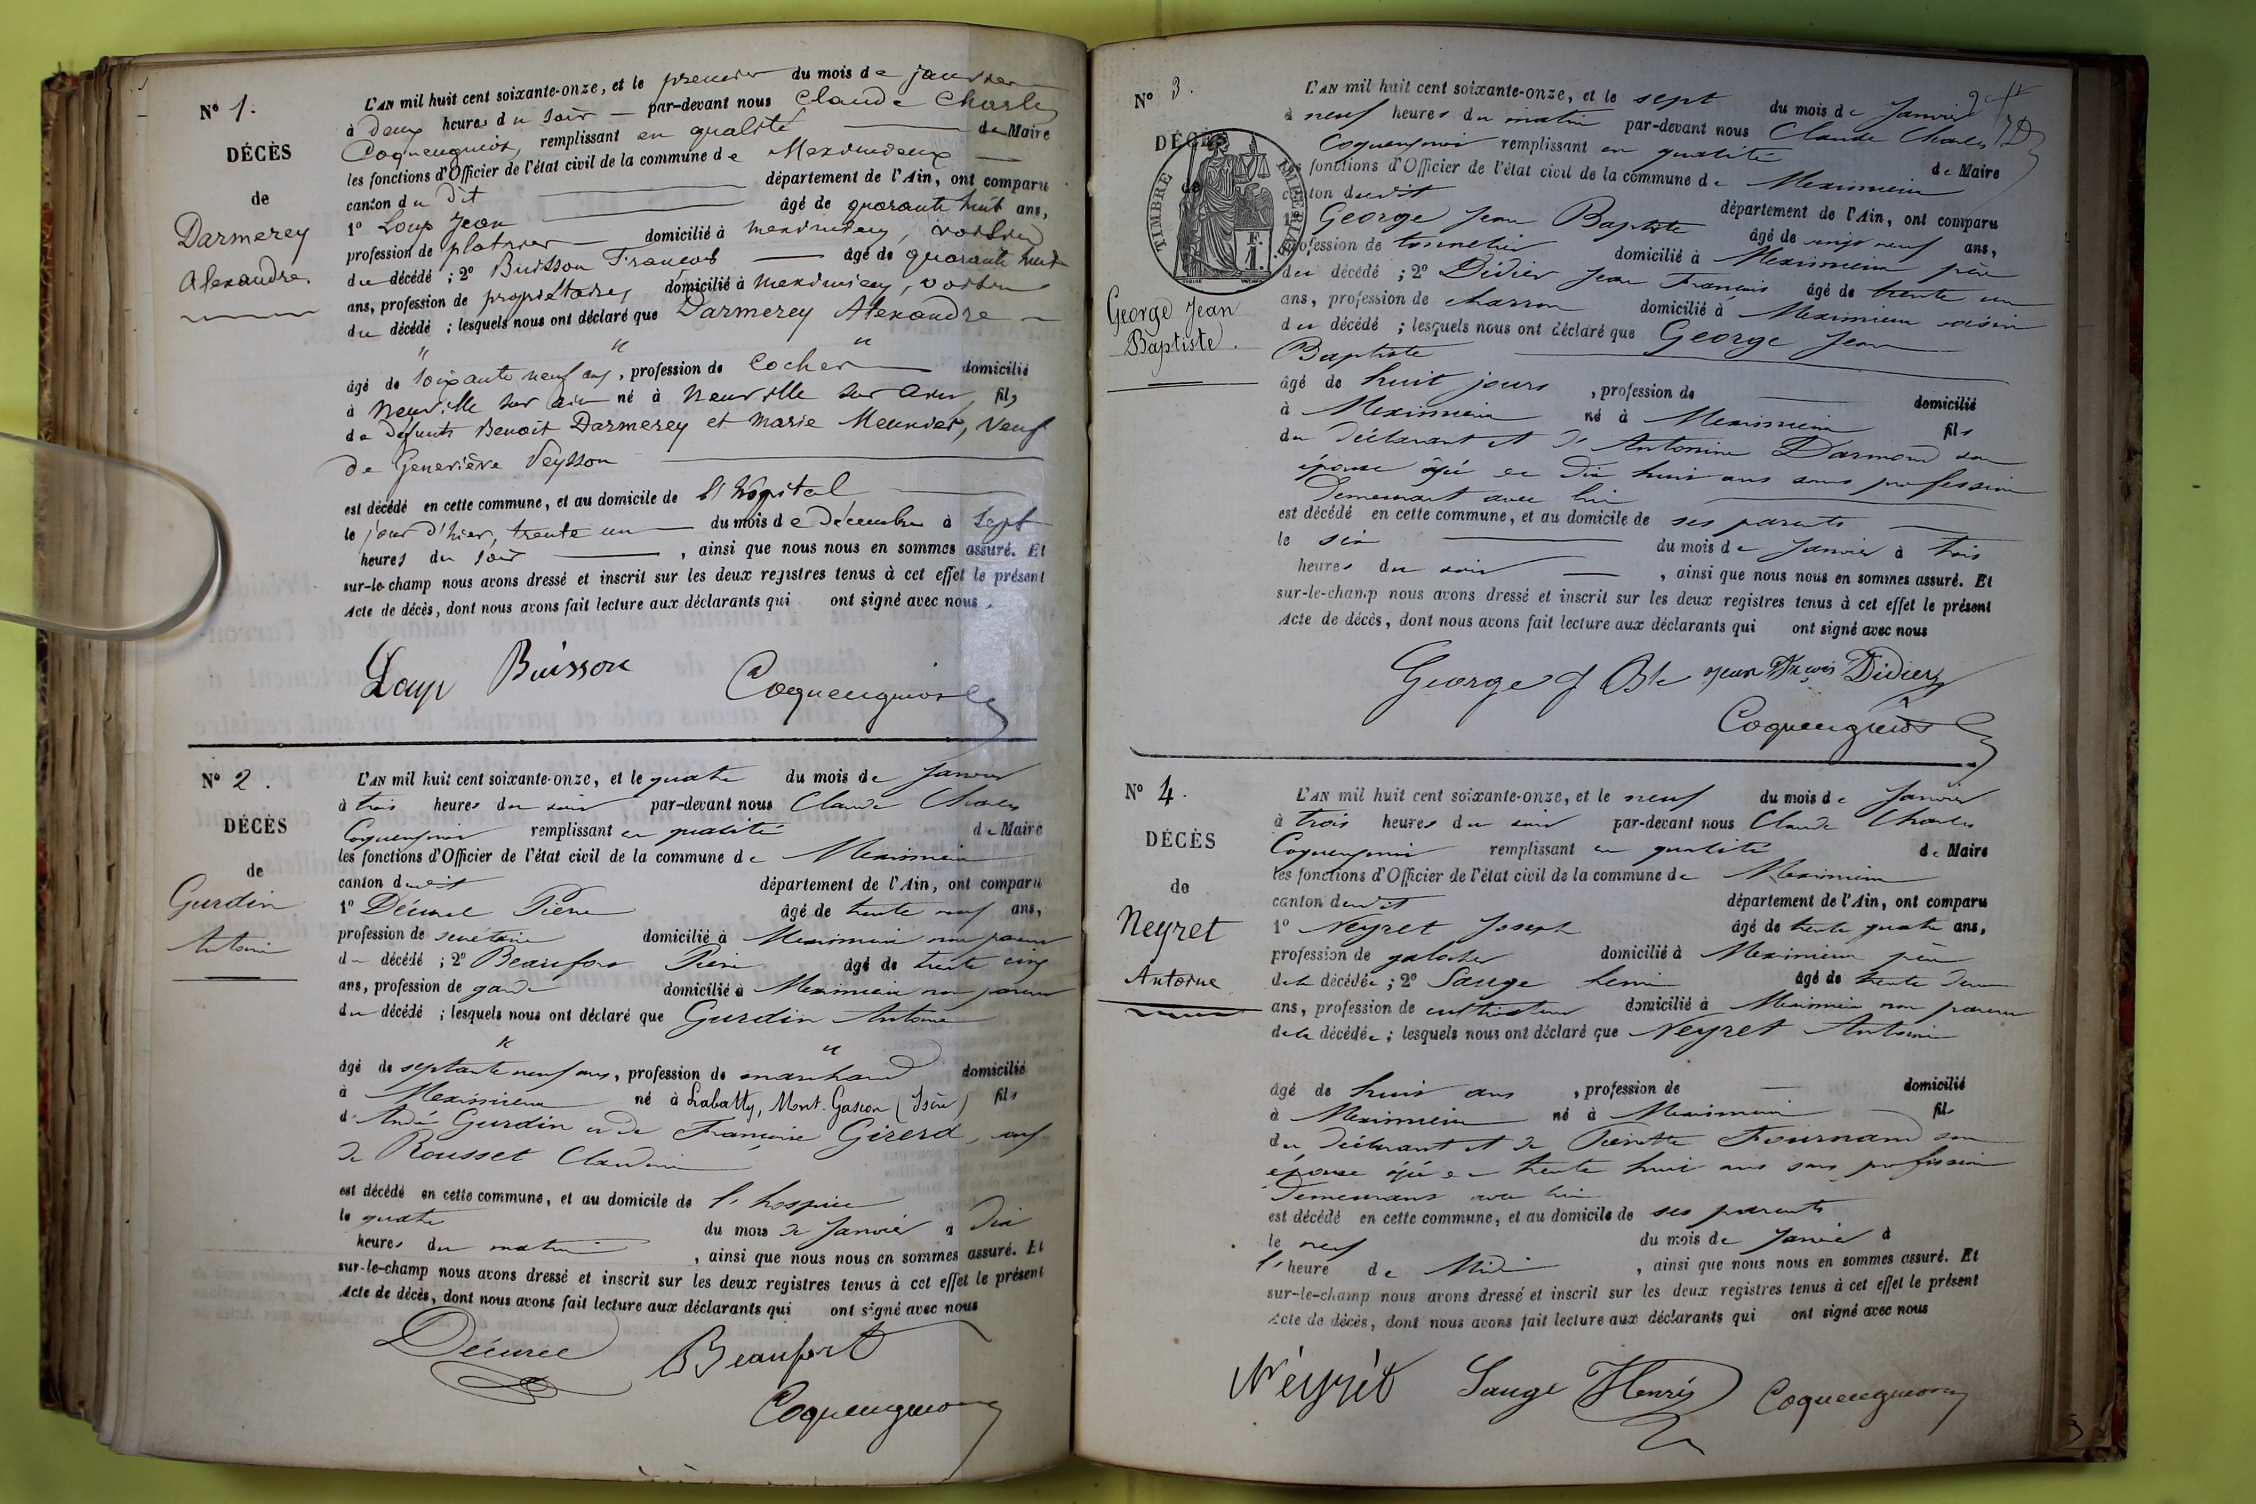 N° 1.
DÉCÈS
de
Darmerey
Alexandre.
L'AN mil huit cent soixante-onze, et le premier du mois de janvier
à deux heures du soir par-devant nous Claude Charles
Coquengniot, remplissant en qualité de Maire
les fonctions d'Officier de l'état civil de la commune de Meximieux
canton du dit département de l'Ain, ont comparu
1° Loup Jean âgé de quarante huit ans,
profession de platrier domicilié à meximieux, voisin
du décédé ; 2° Buisson François âgé de quarante huit
ans, profession de propriétaire, domicilié à meximieux, voisin
du décédé ; lesquels nous ont déclaré que Darmerey Alexandre
âgé de soixante neuf ans, profession de Cocher domicilié
à Neuville sur ain né à Neuville sur ain, fils
de défunts Benoit Darmerey et Marie Meunier, Veuf
de Geneviève Veysson
est décédé en cette commune, et au domicile de l'hôpital
le jour d'hier, trente un du mois de Décembre à sept
heures du soir , ainsi que nous nous en sommes assuré. Et
sur-le-champ nous avons dressé et inscrit sur les deux registres tenus à cet effet le présent
Acte de décès, dont nous avons fait lecture aux déclarants qui ont signé avec nous.
Loup Buisson Coquengniot
N° 2.
DÉCÈS
de
Gurdin
Antoine
L'AN mil huit cent soixante-onze, et le quatre du mois de Janvier
à trois heures du soir par-devant nous Claude Charles
Coquengniot remplissant en qualité de Maire
les fonctions d'Officier de l'état civil de la commune de Meximieux
canton dudit département de l'Ain, ont comparu
1° Pierre âgé de trente neuf ans,
profession de secrétaire domicilié à Meximieux non parent
du décédé ; 2° Beaufort Pierre âgé de trente cinq
ans, profession de garde domicilié à Meximieux non parent
du décédé ; lesquels nous ont déclaré que Gurdin Antoine
âgé de septante neuf ans, profession de marchand domicilié
à Meximieux né à Labatty, Mont-Gascon (Isère) fils
d'André Gurdin et de Françoise Girerd, veuf
de Rousset Claudine
est décédé en cette commune, et au domicile de l'hospice
le quatre du mois de Janvier à dix
heures du matin , ainsi que nous nous en sommes assuré. Et
sur-le-champ nous avons dressé et inscrit sur les deux registres tenus à cet effet le présent
Acte de décès, dont nous avons fait lecture aux déclarants qui ont signé avec nous
Beaufort
Coquengniot
N° 3.
DÉCÈS
de
George Jean
Baptiste.
TIMBRE IMPÉRIAL
L'AN mil huit cent soixante-onze, et le sept du mois de Janvier
à neuf heures du matin par-devant nous Claude Charles
Coquengniot remplissant en qualité de Maire
les fonctions d'Officier de l'état civil de la commune de Meximieux
canton dudit département de l'Ain, ont comparu
1° George Jean Baptiste âgé de vingt neuf ans,
profession de tonnelier domicilié à Meximieux père
du décédé ; 2° Didier Jean François âgé de trente un
ans, profession de charron domicilié à Meximieux voisin
du décédé ; lesquels nous ont déclaré que George Jean
Baptiste
âgé de huit jours , profession de domicilié
à Meximieux né à Meximieux fils
du déclarant et d'Antonine Darmond son
épouse âgée de dix huit ans sans profession
Demeurant avec lui
est décédé en cette commune, et au domicile de ses parents
le six du mois de Janvier à trois
heures du soir , ainsi que nous nous en sommes assuré. Et
sur-le-champ nous avons dressé et inscrit sur les deux registres tenus à cet effet le présent
Acte de décès, dont nous avons fait lecture aux déclarants qui ont signé avec nous
George J Bte Jean François Didier
Coquengniot
N° 4.
DÉCÈS
de
Neyret
Antoine
L'AN mil huit cent soixante-onze, et le neuf du mois de Janvier
à trois heures du soir par-devant nous Claude Charles
Coquengniot remplissant en qualité de Maire
les fonctions d'Officier de l'état civil de la commune de Meximieux
canton dudit département de l'Ain, ont comparu
1° Neyret Joseph âgé de trente quatre ans,
profession de galochier domicilié à Meximieux père
de la décédée ; 2° Sauge henri âgé de trente deux
ans, profession de cultivateur domicilié à Meximieux non parent
de la décédée ; lesquels nous ont déclaré que Neyret Antoine
âgé de huit ans , profession de domicilié
à Meximieux né à Meximieux fils
du déclarant et de Pierrette Fournand son
épouse âgée de trente huit ans sans profession
Demeurant avec lui
est décédé en cette commune, et au domicile de ses parents
le neuf du mois de Janvier à
l'heure de Midi , ainsi que nous nous en sommes assuré. Et
sur-le-champ nous avons dressé et inscrit sur les deux registres tenus à cet effet le présent
Acte de décès, dont nous avons fait lecture aux déclarants qui ont signé avec nous
Neyret Sauge Henri Coquengniot